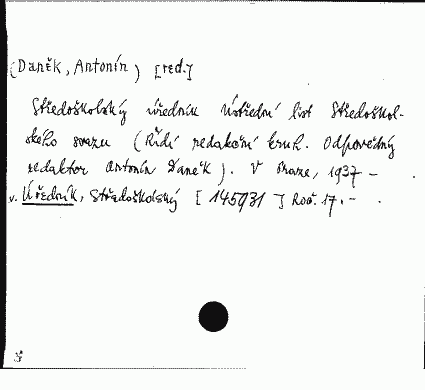 (Daněk, Antonín) [red.]
Středoškolský úředník Ústřední list Středoškol-
ského svazu (Řídí redakční kruh. Odpovědný
redaktor Antonín Daněk). V Praze, 1937 -
v. Úředník, Středoškolský [145931] Roč. 17.-